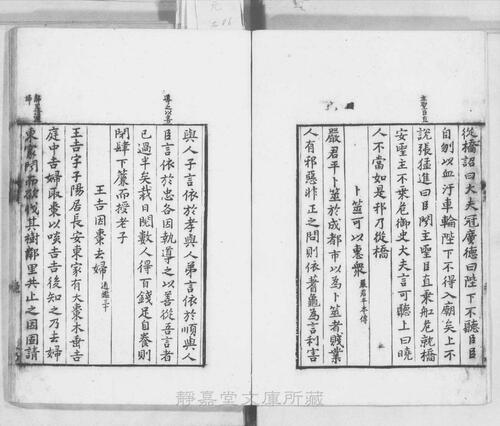 從橋詔曰大夫冠廣德曰陛下不聽臣臣
自刎以血汙車輪陛下不得入廟矣上不
說張猛進曰臣聞主聖臣直乘船危就橋
安聖主不乘危御史大夫言可聽上曰曉
人不當如是邪乃從橋
卜筮可以惠衆 嚴君平本傳
嚴君平卜筮於成都市以為卜筮者賤業
人有邪惡非正之問則依蓍龜為言利害
主聖臣直
與人子言依於孝與人弟言依於順與人
臣言依於忠各因執導之以善從吾言者
已過半矣裁日閱數人得百錢足自養則
閉肆下簾而授老子
王吉因棗去婦 通鑑二十
王吉字子陽居長安東家有大棗木垂吉
庭中吉婦取棗以啖吉吉後知之乃去婦
東家聞而欲伐其樹鄰里共止之因固請
導之以善
靜嘉堂文庫所藏